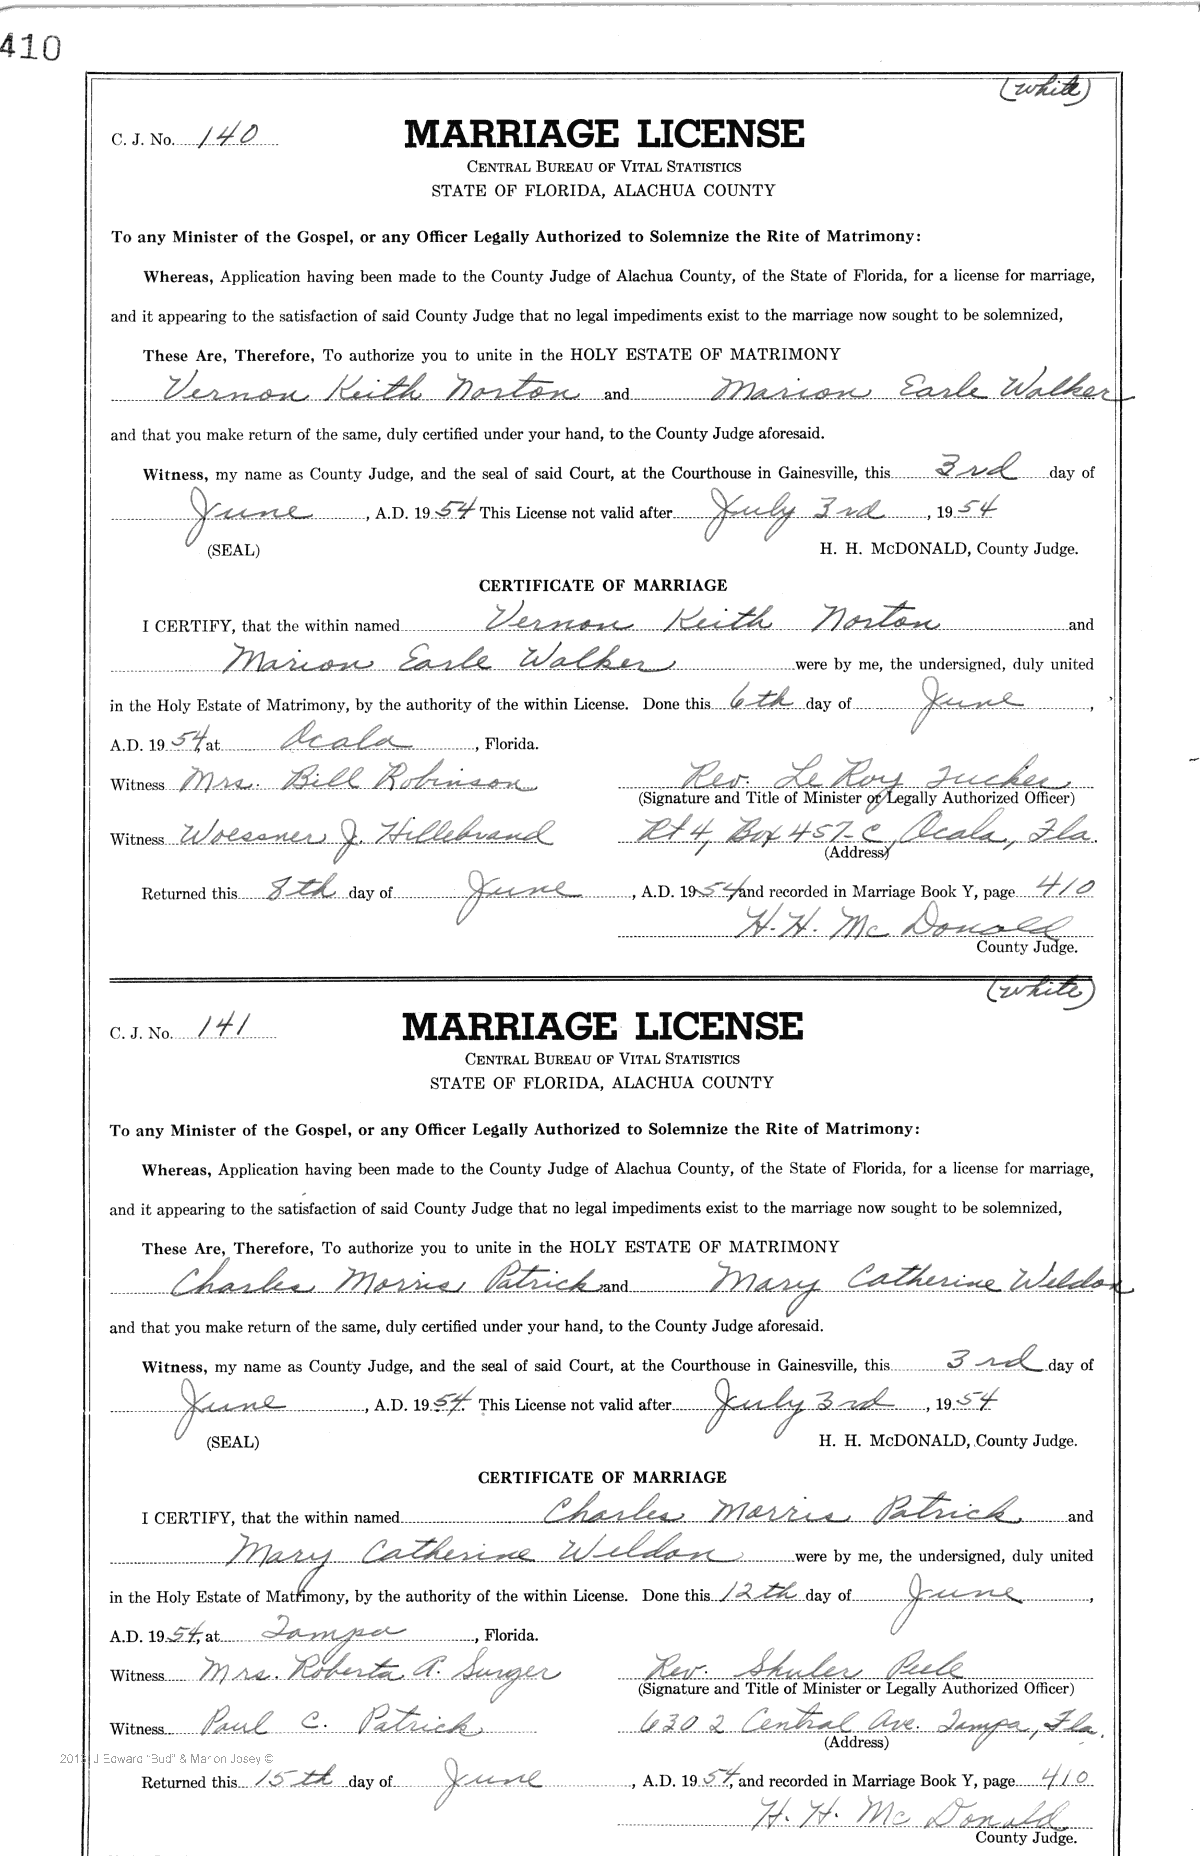 410
(White)
C. J. No. 140
MARRIAGE LICENSE
CENTRAL BUREAU OF VITAL STATISTICS
STATE OF FLORIDA, ALACHUA COUNTY
To any Minister of the Gospel, or any Officer Legally Authorized to Solemnize the Rite of Matrimony:
Whereas, Application having been made to the County Judge of Alachua County, of the State of Florida, for a license for marriage,
and it appearing to the satisfaction of said County Judge that no legal impediments exist to the marriage now sought to be solemnized,
These Are, Therefore, To authorize you to unite in the HOLY ESTATE OF MATRIMONY
Vernon Keith Norton and Marion Earle Walker
and that you make return of the same, duly certified under your hand, to the County Judge aforesaid.
Witness, my name as County Judge, and the seal of said Court, at the Courthouse in Gainesville, this 3rd day of
June, A.D. 1954 This License not valid after July 3rd, 1954
(SEAL) H. H. McDONALD, County Judge.
CERTIFICATE OF MARRIAGE
I CERTIFY, that the within named Vernon Keith Norton and
Marion Earle Walker were by me, the undersigned, duly united
in the Holy Estate of Matrimony, by the authority of the within License. Done this 6th day of June,
A.D. 1954, at Ocala, Florida.
Witness Mrs. Bill Robinson Rev. Le Roy Tucker
(Signature and Title of Minister or Legally Authorized Officer)
Witness Woessner J. Hillebrand Rt 4, Box 457-C, Ocala, Fla.
(Address)
Returned this 8th day of June, A.D. 1954, and recorded in Marriage Book Y, page 410
H. H. McDonald
County Judge.
(White)
C. J. No. 141
MARRIAGE LICENSE
CENTRAL BUREAU OF VITAL STATISTICS
STATE OF FLORIDA, ALACHUA COUNTY
To any Minister of the Gospel, or any Officer Legally Authorized to Solemnize the Rite of Matrimony:
Whereas, Application having been made to the County Judge of Alachua County, of the State of Florida, for a license for marriage,
and it appearing to the satisfaction of said County Judge that no legal impediments exist to the marriage now sought to be solemnized,
These Are, Therefore, To authorize you to unite in the HOLY ESTATE OF MATRIMONY
Charles Morris Patrick and Mary Catherine Weldon
and that you make return of the same, duly certified under your hand, to the County Judge aforesaid.
Witness, my name as County Judge, and the seal of said Court, at the Courthouse in Gainesville, this 3rd day of
June, A.D. 1954. This License not valid after July 3rd, 1954
(SEAL) H. H. McDONALD, County Judge.
CERTIFICATE OF MARRIAGE
I CERTIFY, that the within named Charles Morris Patrick and
Mary Catherine Weldon were by me, the undersigned, duly united
in the Holy Estate of Matrimony, by the authority of the within License. Done this 12th day of June,
A.D. 1954, at Tampa, Florida.
Witness Mrs. Roberta A. Surger Rev. Shuler Peele
(Signature and Title of Minister or Legally Authorized Officer)
Witness Paul C. Patrick 6302 Central Ave. Tampa, Fla.
(Address)
J Edward "Bud" & Marion Josey ©
Returned this 15th day of June, A.D. 1954, and recorded in Marriage Book Y, page 410
H. H. McDonald
County Judge.